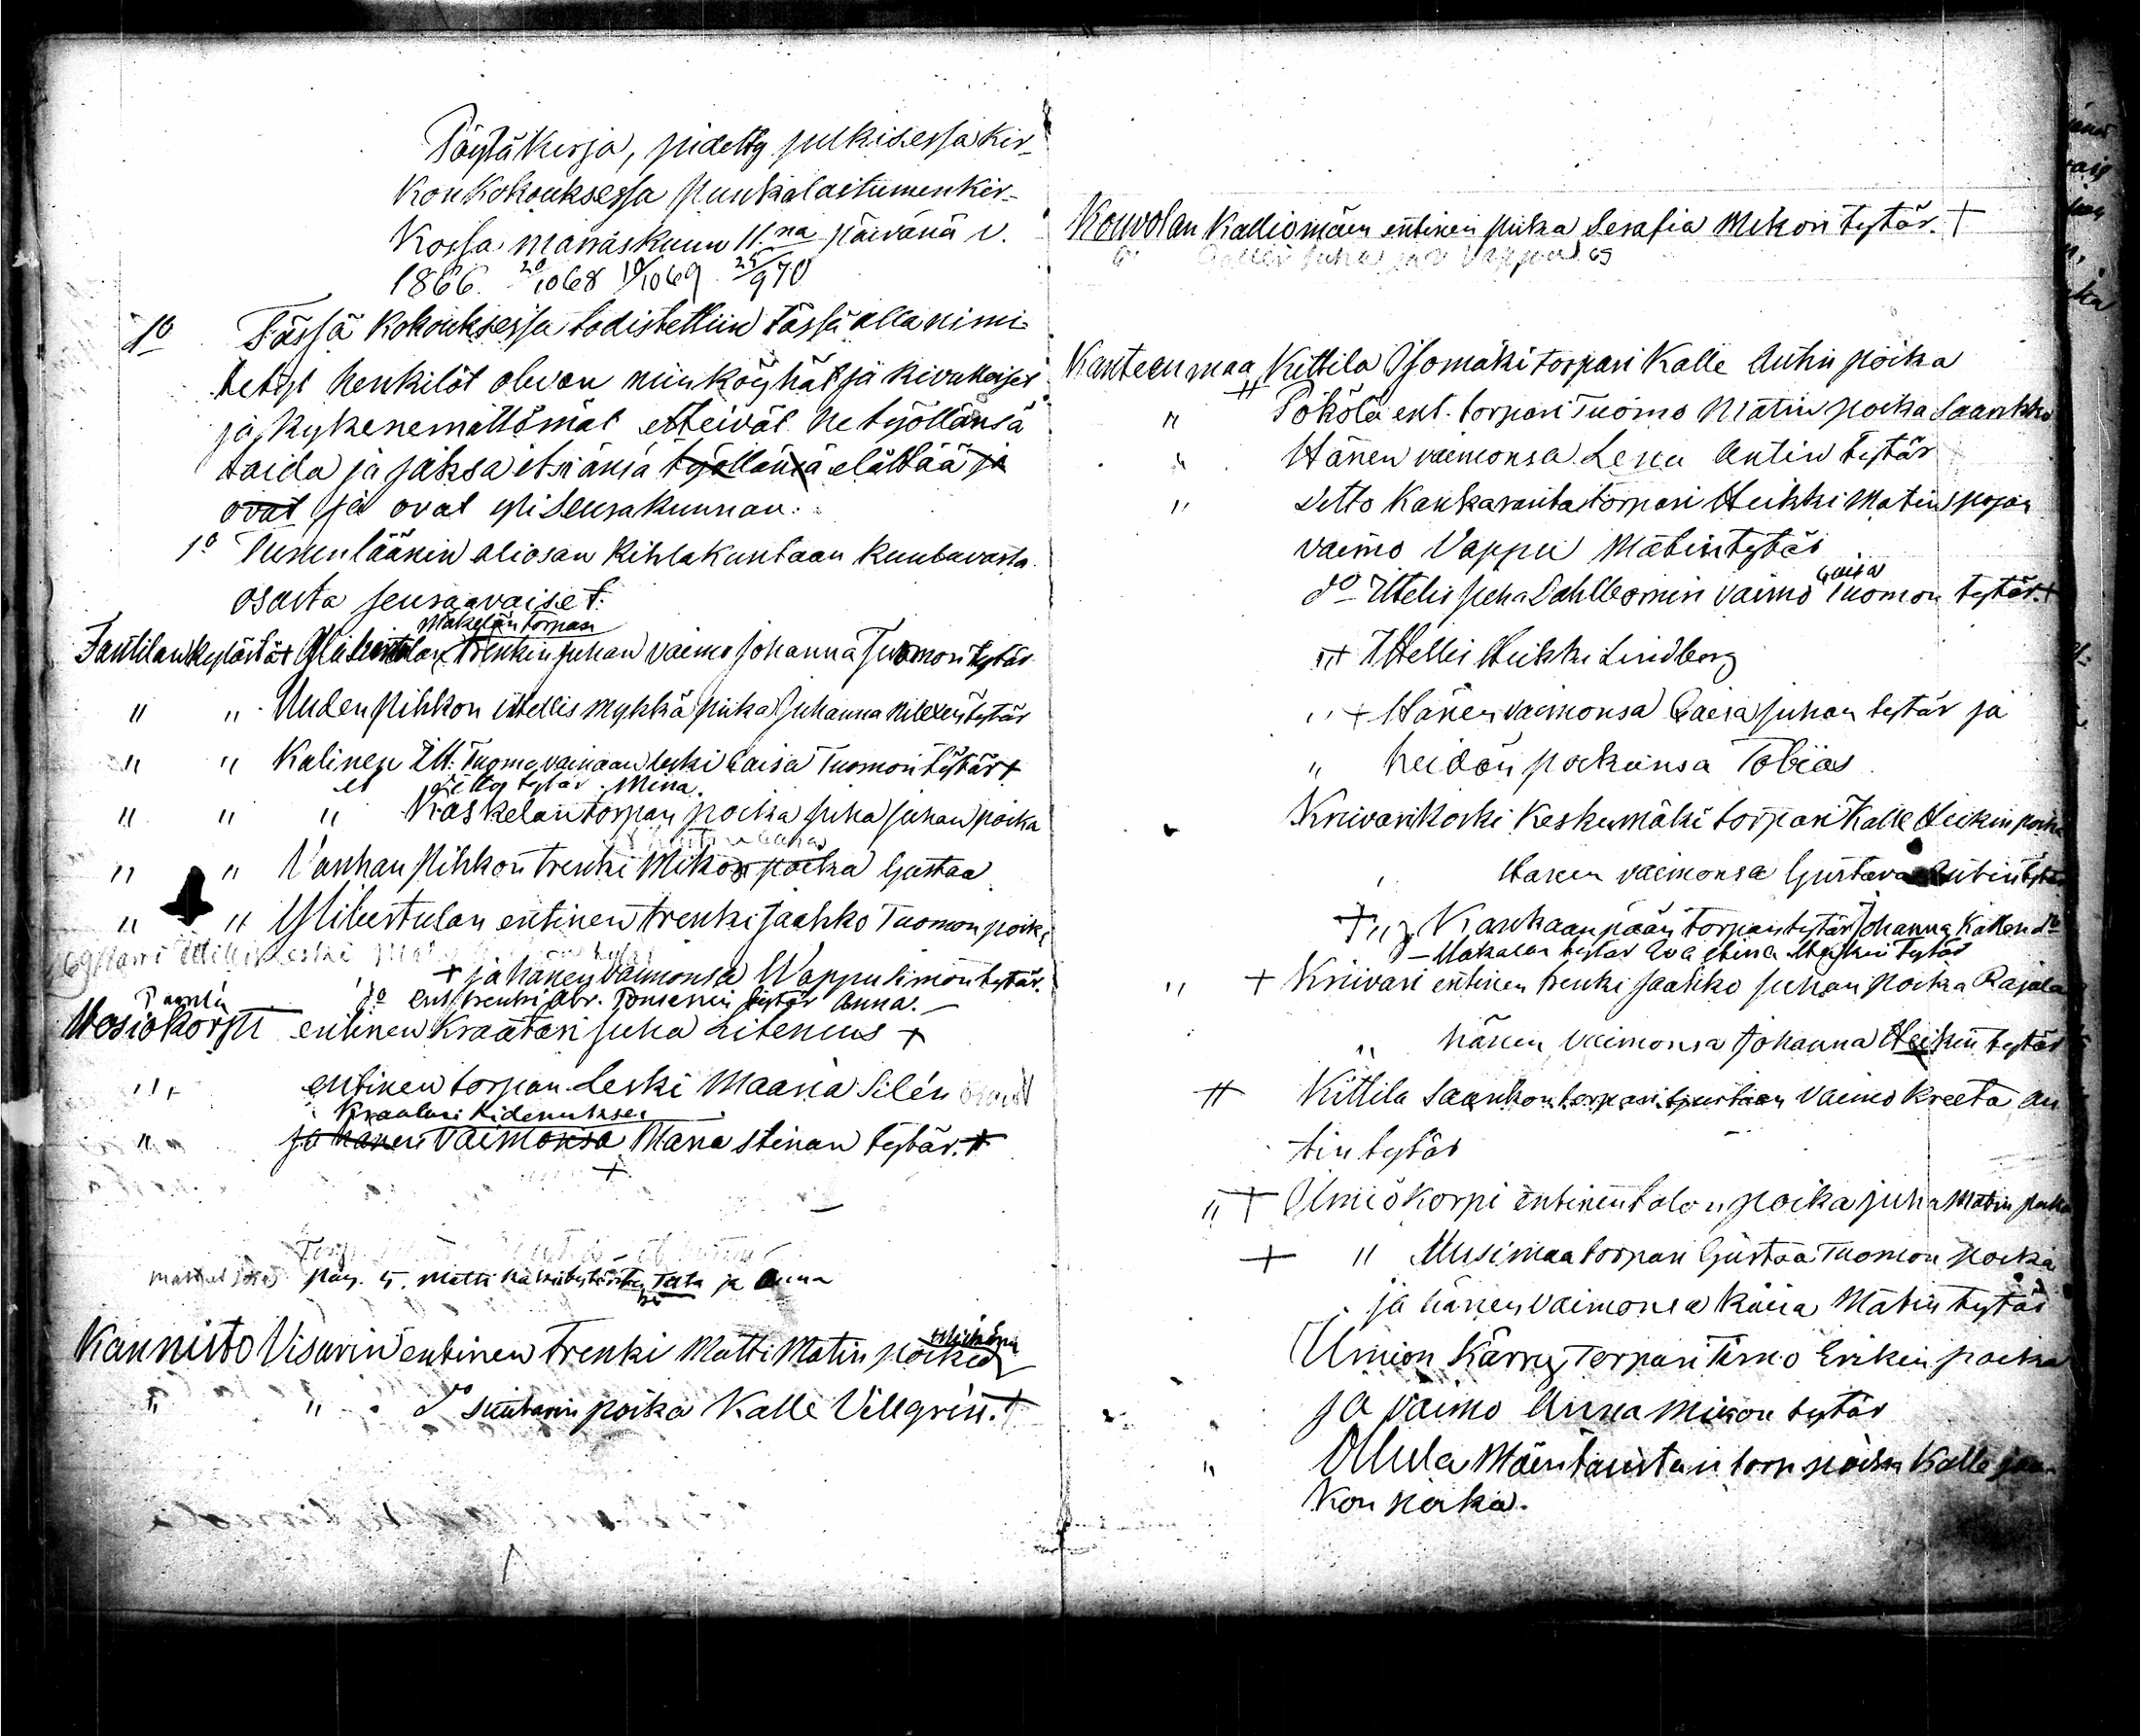 Pöytäkirja, pidetty julkisessa kir-
konkokouksessa Punkalaitumen kir-
kossa marraskuun 11.na päivänä v.
1866. 20/10 68 10/10 69 25/9 70
1o Tässä kokouksessa todistettiin tässä alla nimi-
tetyt henkilöt olevan niin köyhät ja kivuloiset
ja kykenemättömät etteivät he työllänsä
taida ja jaksa itsiänsä työllänsä elättää ja
ovat ja ovat yli seurakunnan.
1o Turun läänin aliosan kihlakuntaan kuuluvasta
osasta seuraavaiset:
Mäkelän torpan
Jantilan kylästä trenkin Juhan vaimo Johanna Tuomon tytär
" " Uuden Pihkon ittellis mykkä piika Juhanna tytär
" " Kalinen Itt: Tuomo vainaan leski Caisa Tuomon tytär +
ditto tytär Mina.
" " " Kaskelan torpan poika Juha Juhan poika
" " Vanhan Pihkon trenki Mikon poika Gustaa
" " entinen trenki Jaakko Tuomon poika
+ ja hänen vaimonsa Wappu Simon tytär.
do ent. trenki Abr. tytär Anna.
entinen kraatari Juha Litenius +
" + entinen torpan leski Maaria Silén
Kraatari
" ja hänen vaimonsa Maria Stinan tytär. +
+
pag. 5. Matti ja Anna
Kannisto Visarin entinen trenki Matti Matin poika
" " do suutarin poika Kalle Villgrén. +
Kouvolan Kalliomäen entinen piika Serafia Mikon tytär. +
Juha ja Vappu 69
Kanteenmaa Kittilä Isomäki torpari Kalle Antin poika
" Pökölä ent. torpari Tuomo Matin poika Saarikko
" Hänen vaimonsa Lena Antin tytär
" Ditto Kankaranta torpari Heikki Matin pojan
vaimo Vappu Matin tytär
Caisa
do Ittelis Juha Dahlbomin vaimo Tuomon tytär. +
" + Ittellis Heikki Lindberg
" + Hänen vaimonsa Caisa Juhan tytär ja
" heidän poikansa Tobias
Kriivarikorki Keskumäki torpari Kalle Heikin poika
" Hänen vaimonsa Gustava Antin tytär
+ " Kankaanpään torpan tytär Johanna Kallen do
– Makalan tytär Eva Stina tytär
" + Kriivari entinen trenki Jaakko Juhan poika Rajala
" hänen vaimonsa Johanna Heikin tytär
++ Kittilä Saarikon torpari Gustaan vaimo Kreeta An
tin tytär
" + Urmiokorpi entinen talon poika Juha Matin poika
+ " Uusimaa torpari Gustaa Tuomon poika
ja hänen vaimonsa Kaisa Matin tytär
Urmion Kärry Torpari Timo Erikin poika
ja vaimo Anna Mikon tytär
" Ollila Mäentaustan torp poika Kalle Jaa-
kon poika.